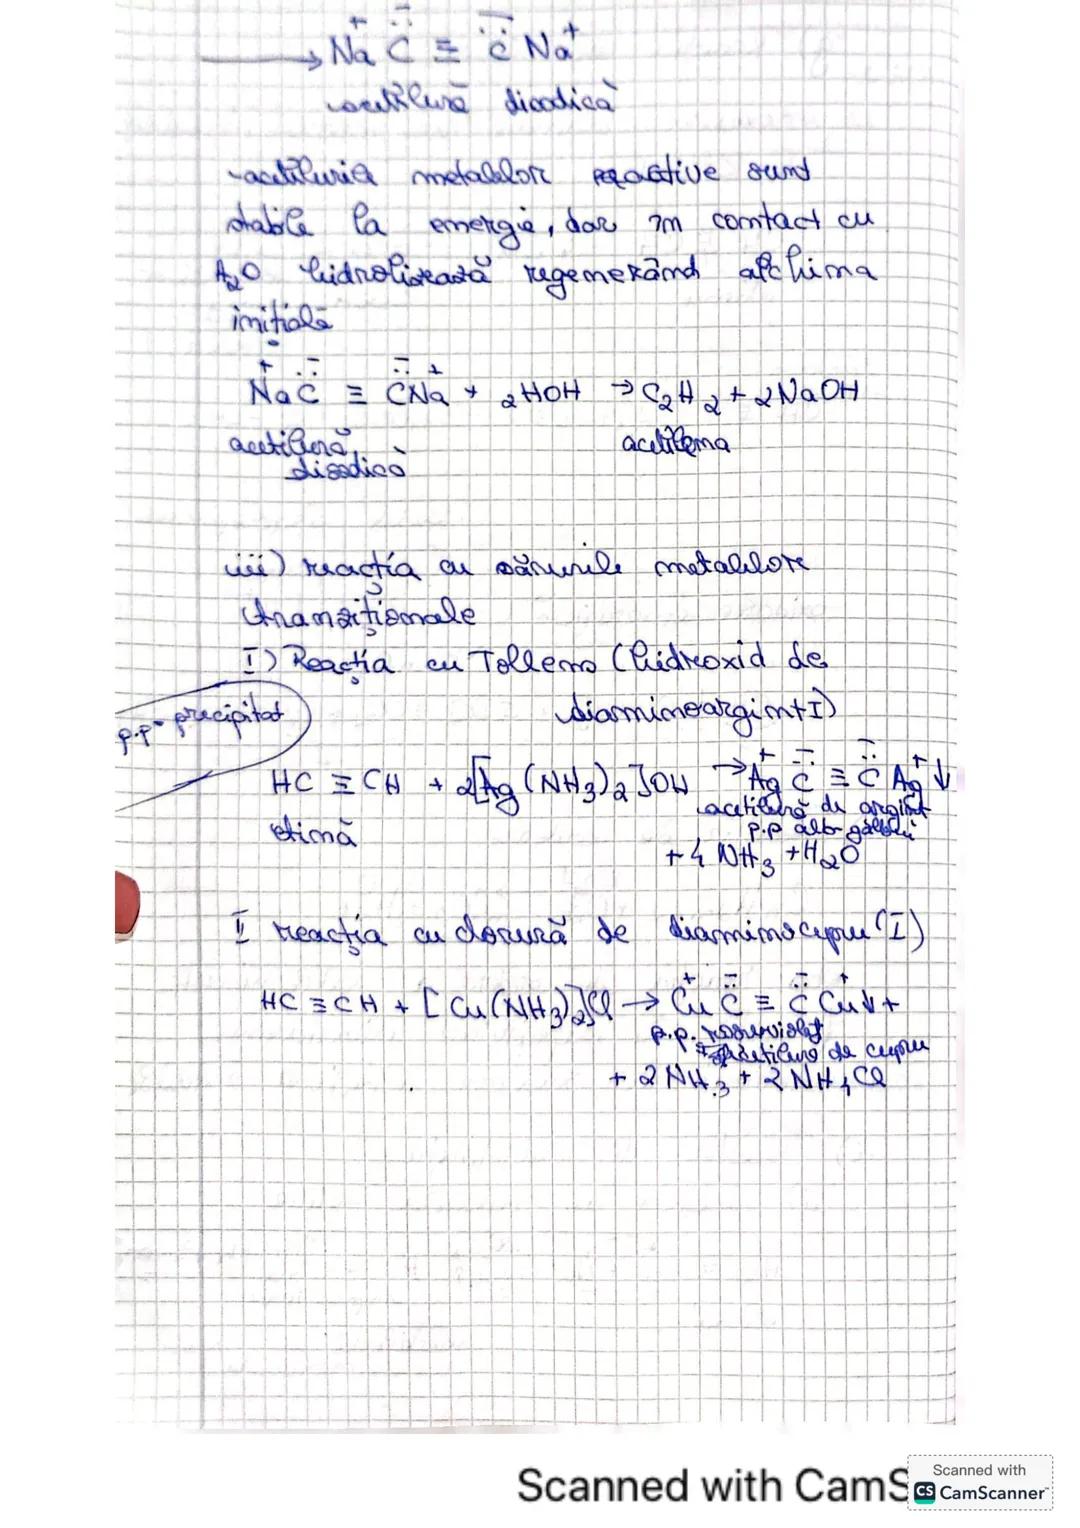 → Na⁺ C̄̈ ≡ C̄̈ Na⁺
acetilură disodică
-acetiluria metalelor reactive sunt
stabile la energie, dar în contact cu
H₂O hidrolizează regenerând alchina
inițială
Na⁺ C̄̈ ≡ C̄̈ Na⁺ + 2HOH → C₂H₂ + 2NaOH
acetilură disodică acetilena
iii) reacția cu sărurile metalelor
tranziționale
I) Reacția cu Tollens (hidroxid de
diaminoargint I)
p.p - precipitat
HC ≡ CH + 2[Ag(NH₃)₂]OH → Ag⁺ C̄̈ ≡ C̄̈ Ag⁺↓
etină acetilură de argint
p.p alb gălbui
+ 4 NH₃ + H₂O
II reacția cu clorură de diaminocupru (I)
HC ≡ CH + [Cu(NH₃)₂]Cl → Cu⁺ C̄̈ ≡ C̄̈ Cu⁺↓ +
p.p. roșu violet
acetilură de cupru
+ 2 NH₃ + 2 NH₄Cl
Scanned with CamS
Scanned with
CS CamScanner